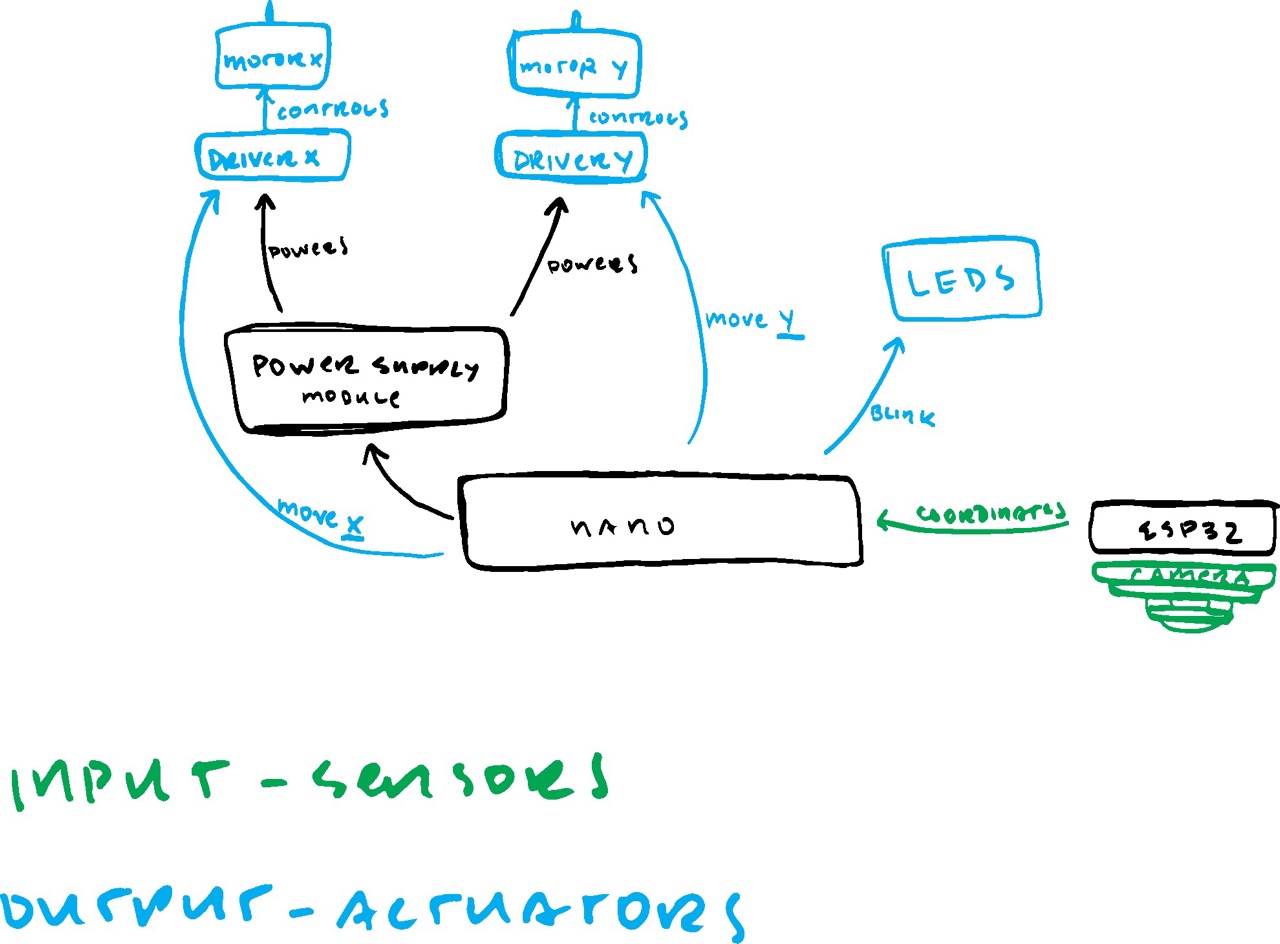 MOTOR X
MOTOR Y
CONTROLS
CONTROLS
DRIVER X
DRIVER Y
POWERS
POWERS
LEDS
MOVE Y
POWER SUPPLY
MODULE
BLINK
MOVE X
NANO
COORDINATES
ESP32
CAMERA
INPUT - SENSORS
OUTPUT - ACTUATORS